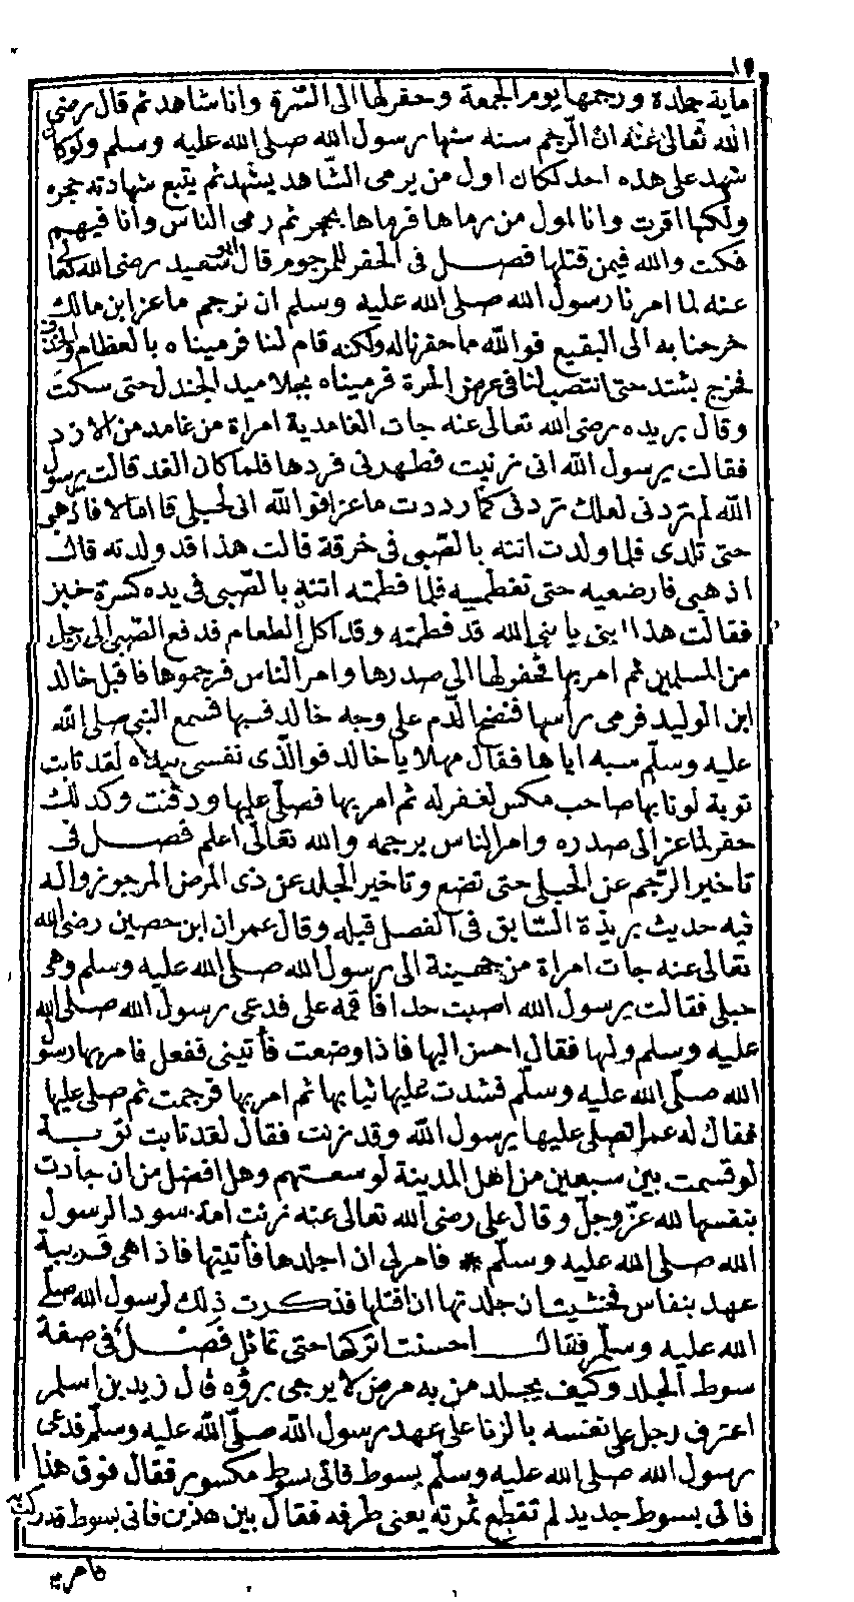 ١٩
ماية جلدة ورجمها يوم الجمعة وحفر لها الى السّرة وانا شاهد ثم قال رضي
الله تعالى عنه ان الرّجم سنة سنها رسول الله صلى الله عليه وسلم ولو كان
شهد على هذه احد لكان اول من يرمى الشّاهد يشهد ثم يتبع شهادته حجره
ولكنها اقرت وانا اول من رماها فرماها بحجر ثم رمى الناس وانا فيهم
فكنت والله فيمن قتلها فصل فى الحفر للمرجوم قال ابو سعيد رضى الله تعالى
عنه لما امرنا رسول الله صلى الله عليه وسلم ان نرجم ماعز ابن مالك
خرجنا به الى البقيع فوالله ما حفرنا له ولكنه قام لنا فرميناه بالعظام والخذف
فخرج يشتد حتى انتصب لنا فى عرض الحرة فرميناه بجلاميد الجندل حتى سكت
وقال بريده رضى الله تعالى عنه جات الغامدية امراة من غامد من الازد
فقالت يرسول الله انى زنيت فطهرنى فردها فلما كان الغد قالت يرسول
الله لم تردنى لعلك تردنى كما رددت ماعزا فوالله انى لحبلى قا امالا فاذهبى
حتى تلدى فلما ولدت اتته بالصّبى فى خرقة قالت هذا قد ولدته قال
اذهبى فارضعيه حتى تفطميه فلما فطمته اتته بالصّبى فى يده كسرة خبز
فقالت هذا ابنى يا نبى الله قد فطمته وقد اكل الطعام فدفع الصّبى الى رجل
من المسلمين ثم امر بها فحفر لها الى صدرها وامر الناس فرجموها فاقبل خالد
ابن الوليد فرمى رأسها فنضخ الدّم على وجه خالد فسبها فسمع النبى صلى الله
عليه وسلّم سبه اياها فقال مهلا يا خالد فوالّذى نفسى بيده لقد تابت
توبة لو تابها صاحب مكس لغفر له ثم امر بها فصلّى عليها ودفنت وكذلك
حفر لماعز الى صدره وامر الناس برجمه والله تعالى اعلم فصل فى
تاخير الرّجم عن الحبلى حتى تضع وتاخير الجلد عن ذى المرض المرجو زواله
فيه حديث بريدة السّابق فى الفصل قبله وقال عمران ابن حصين رضى الله
تعالى عنه جات امراة من جهينة الى رسول الله صلى الله عليه وسلم وهى
حبلى فقالت يرسول الله اصبت حدا فاقمه على فدعى رسول الله صلى الله
عليه وسلم وليها فقال احسن اليها فاذا وضعت فأتينى ففعل فامر بها رسول
الله صلّى الله عليه وسلّم فشدت عليها ثيابها ثم امر بها فرجمت ثم صلى عليها
فقال له عمر اتصلى عليها يرسول الله وقد زنت فقال لقد تابت توبة
لو قسمت بين سبعين من اهل المدينة لوسعتهم وهل افضل من ان جادت
بنفسها لله عزّ وجلّ وقال على رضى الله تعالى عنه زنت امة سودا لرسول
الله صلى الله عليه وسلّم * فامرلى ان اجلدها فأتيتها فاذا هى قريبة
عهد بنفاس فخشيت ان جلدتها ان اقتلها فذكرت ذلك لرسول الله صلّى
الله عليه وسلّم فقال احسنت اتركها حتى تماثل فصل فى صفة
سوط الجلد وكيف يجلد من به مرض لا يرجى برؤه قال زيد بن اسلم
اعترف رجل على نفسه بالزنا على عهد رسول الله صلّى الله عليه وسلّم فدعى
رسول الله صلى الله عليه وسلّم بسوط فاتى بسوط مكسور فقال فوق هذا
فاتى بسوط جديد لم تقطع ثمرته يعنى طرفه فقال بين هذين فاتى بسوط قد ركب به
فامر به